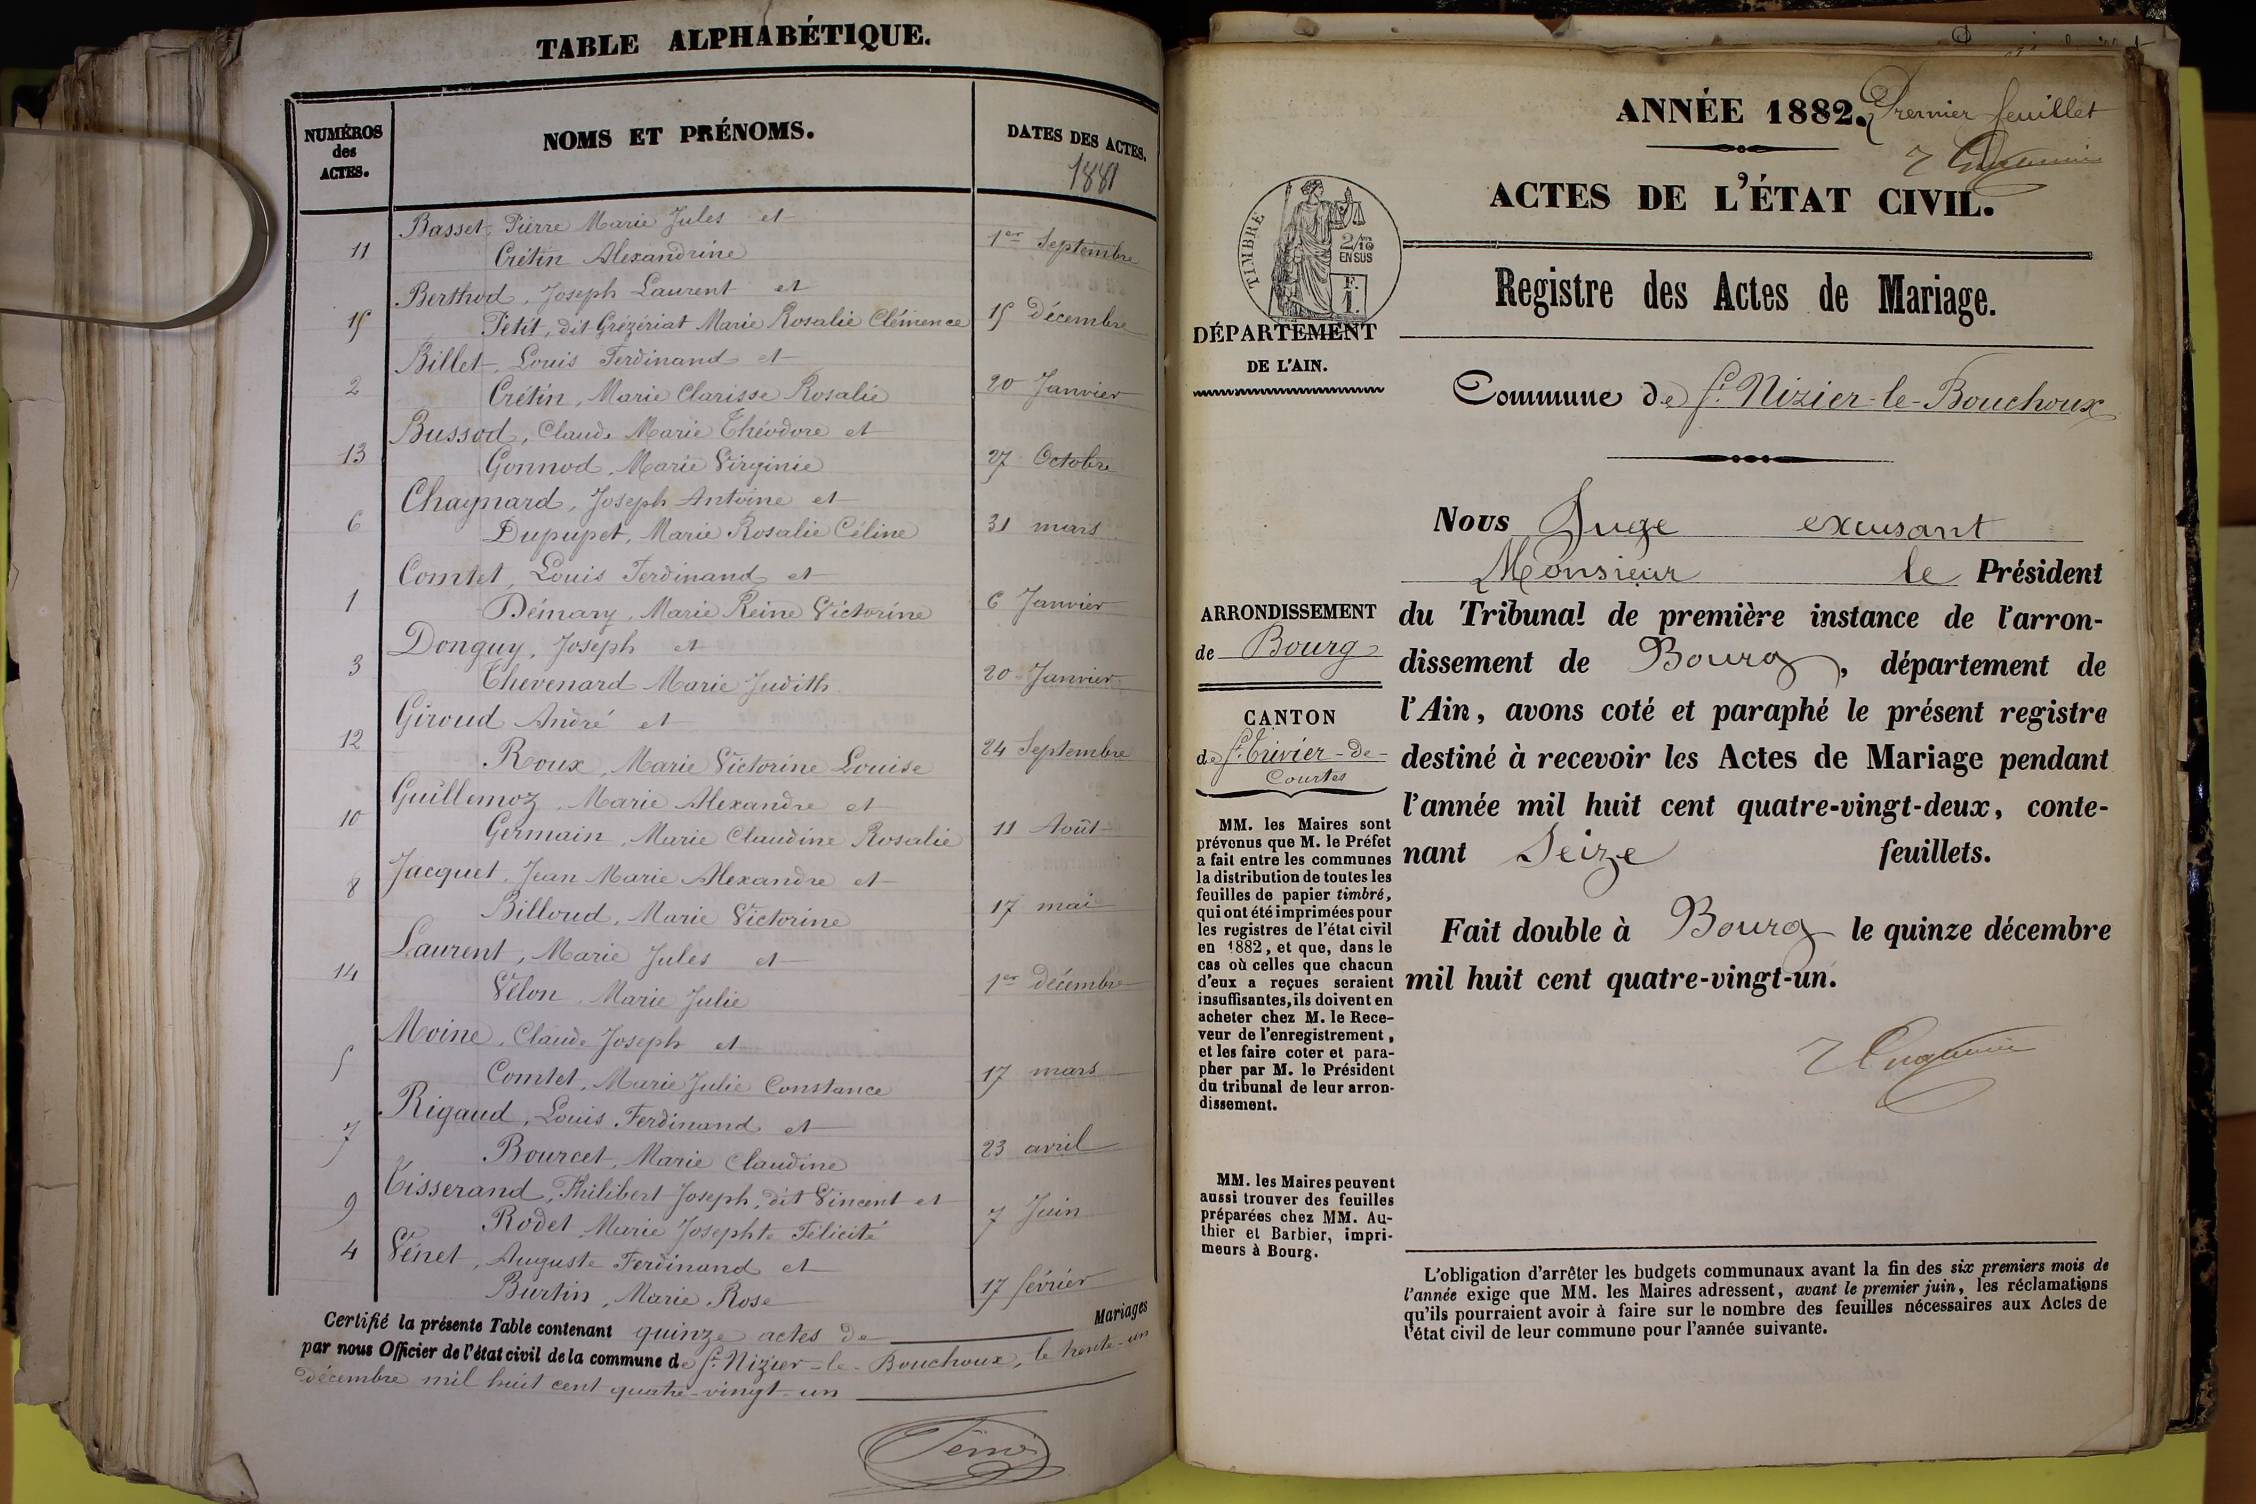 TABLE ALPHABÉTIQUE.
NUMÉROS
des
ACTES.
NOMS ET PRÉNOMS.
DATES DES ACTES.
1881
Basset, Pierre Marie Jules et
11 Crétin Alexandrine 1er Septembre
Berthod, Joseph Laurent et
15 Petit, dit Grézériat Marie Rosalie Clémence 15 Décembre
Billet, Louis Ferdinand et
2 Crétin, Marie Clarisse Rosalie 20 Janvier
Bussod, Claude Marie Théodore et
13 Gonnod, Marie Virginie 27 Octobre
Chaynard, Joseph Antoine et
6 Dupupet, Marie Rosalie Céline 31 mars
Comtet, Louis Ferdinand et
1 Démary, Marie Reine Victorine 6 Janvier
Donguy, Joseph et
3 Thevenard Marie Judith 20 Janvier
Giroud André et
12 Roux, Marie Victorine Louise 24 Septembre
Guillemoz, Marie Alexandre et
10 Germain, Marie Claudine Rosalie 11 Août
Jacquet, Jean Marie Alexandre et
8 Billoud, Marie Victorine 17 mai
Laurent, Marie Jules et
14 Vélon, Marie Julie 1er décembre
Moine, Claude Joseph et
5 Comtet, Marie Julie Constance 17 mars
Rigaud, Louis Ferdinand et
7 Bourcet, Marie Claudine 23 avril
Tisserand, Philibert Joseph, dit Vincent et
9 Rodet Marie Josephte Félicité 7 Juin
4 Vénet, Auguste Ferdinand et
Burtin, Marie Rose 17 février
Certifié la présente Table contenant quinze actes de Mariages
par nous Officier de l'état civil de la commune de St Nizier-le-Bouchoux, le trente-un
décembre mil huit cent quatre-vingt-un
ANNÉE 1882. Premier feuillet
ACTES DE L'ÉTAT CIVIL.
TIMBRE
2/10
EN SUS
F.
1.
Registre des Actes de Mariage.
DÉPARTEMENT
DE L'AIN.
Commune de St Nizier-le-Bouchoux
Nous Juge excusant
Monsieur le Président
du Tribunal de première instance de l'arron-
dissement de Bourg, département de
l'Ain, avons coté et paraphé le présent registre
destiné à recevoir les Actes de Mariage pendant
l'année mil huit cent quatre-vingt-deux, conte-
nant Seize feuillets.
Fait double à Bourg le quinze décembre
mil huit cent quatre-vingt-un.
ARRONDISSEMENT
de Bourg
CANTON
de St Trivier-de-
Courtes
MM. les Maires sont
prévenus que M. le Préfet
a fait entre les communes
la distribution de toutes les
feuilles de papier timbré,
qui ont été imprimées pour
les registres de l'état civil
en 1882, et que, dans le
cas où celles que chacun
d'eux a reçues seraient
insuffisantes, ils doivent en
acheter chez M. le Rece-
veur de l'enregistrement,
et les faire coter et para-
pher par M. le Président
du tribunal de leur arron-
dissement.
MM. les Maires peuvent
aussi trouver des feuilles
préparées chez MM. Au-
thier et Barbier, impri-
meurs à Bourg.
L'obligation d'arrêter les budgets communaux avant la fin des six premiers mois de
l'année exige que MM. les Maires adressent, avant le premier juin, les réclamations
qu'ils pourraient avoir à faire sur le nombre des feuilles nécessaires aux Actes de
l'état civil de leur commune pour l'année suivante.